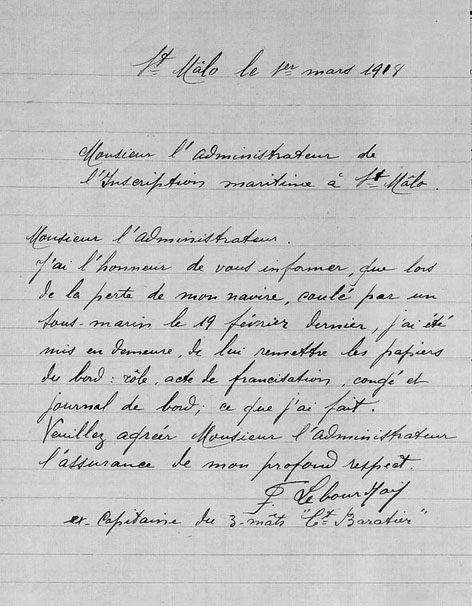 St Mâlo le 1er mars 1918
Monsieur l'administrateur de
l'Inscription maritime à St Mâlo.
Monsieur l'administrateur.
J'ai l'honneur de vous informer, que lors
de la perte de mon navire, coulé par un
sous-marin le 19 février dernier, j'ai été
mis en demeure, de lui remettre les papiers
du bord : rôle, acte de francisation, congé et
journal de bord; ce que j'ai fait.
Veuillez agréer Monsieur l'administrateur
l'assurance de mon profond respect.
F.
ex-capitaine du 3-mâts "Ct Baratier"